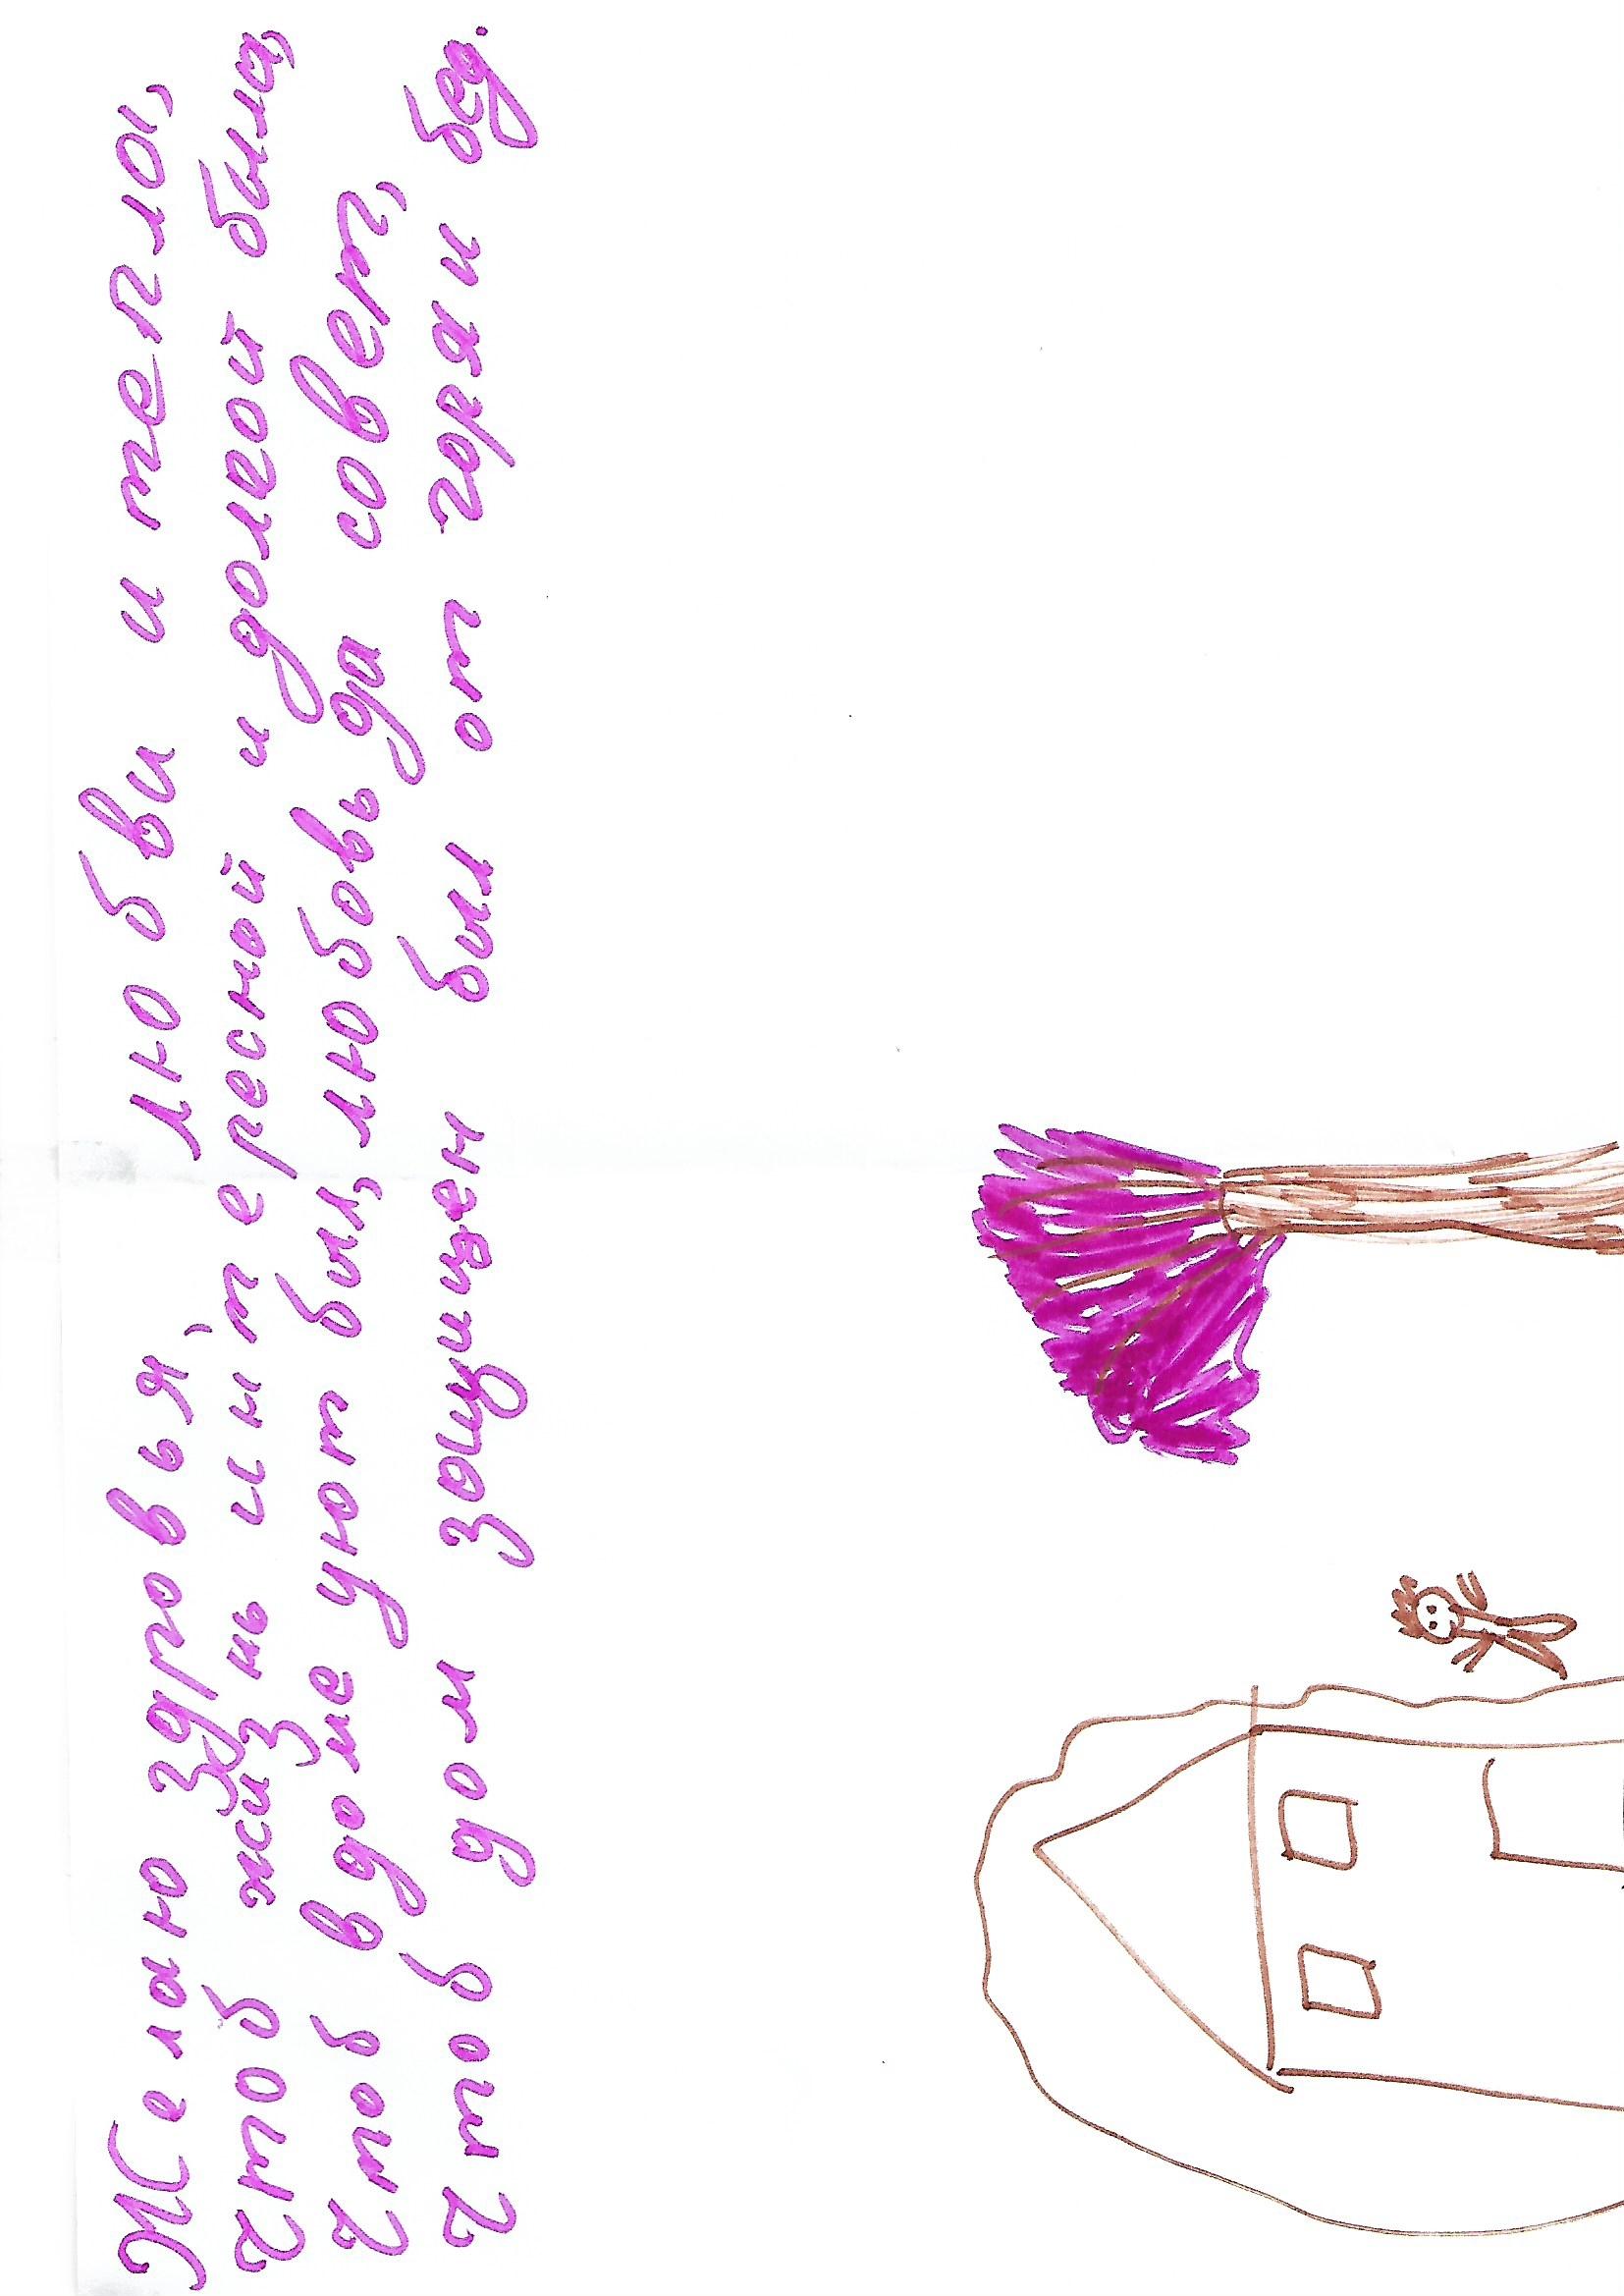 Желаю здровья, любви и тепла,
чтоб жизнь интересной и долгой была,
чтоб в доме уют был, любовь да совет,
чтоб дом защищен был от горя и бед.